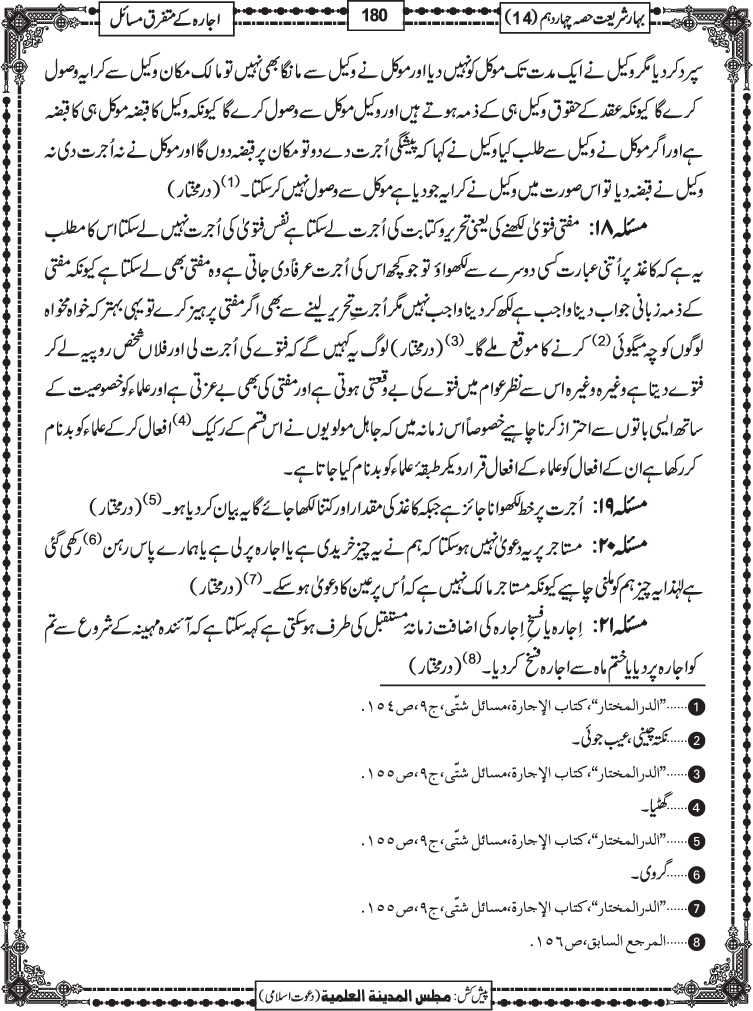 بہارِ شریعت حصہ چہاردہم (14)
180
اجارہ کے متفرق مسائل
سپرد کردیا مگر وکیل نے ایک مدت تک موکل کو نہیں دیا اور موکل نے وکیل سے مانگا بھی نہیں تو مالک مکان وکیل سے کرایہ وصول
کرے گا کیونکہ عقد کے حقوق وکیل ہی کے ذمہ ہوتے ہیں اور وکیل موکل سے وصول کرے گا کیونکہ وکیل کا قبضہ موکل ہی کا قبضہ
ہے اور اگر موکل نے وکیل سے طلب کیا وکیل نے کہا کہ پیشگی اُجرت دے دو تو مکان پر قبضہ دوں گا اور موکل نے نہ اُجرت دی نہ
وکیل نے قبضہ دیا تو اس صورت میں وکیل نے کرایہ جو دیا ہے موکل سے وصول نہیں کرسکتا۔(1) (درمختار)
مسئلہ ۱۸: مفتی فتویٰ لکھنے کی یعنی تحریر و کتابت کی اُجرت لے سکتا ہے نفس فتویٰ کی اُجرت نہیں لے سکتا اس کا مطلب
یہ ہے کہ کاغذ پر اُتنی عبارت کسی دوسرے سے لکھواؤ تو جو کچھ اس کی اُجرت عرفاً دی جاتی ہے وہ مفتی بھی لے سکتا ہے کیونکہ مفتی
کے ذمہ زبانی جواب دینا واجب ہے لکھ کر دینا واجب نہیں مگر اُجرتِ تحریر لینے سے بھی اگر مفتی پرہیز کرے تو یہی بہتر کہ خواہ مخواہ
لوگوں کو چہ میگوئی (2) کرنے کا موقع ملے گا۔(3) (درمختار) لوگ یہ کہیں گے کہ فتوے کی اُجرت لی اور فلاں شخص روپیہ لے کر
فتوے دیتا ہے وغیرہ وغیرہ اس سے نظر عوام میں فتوے کی بے وقعتی ہوتی ہے اور مفتی کی بھی بے عزتی ہے اور علماء کو خصوصیت کے
ساتھ ایسی باتوں سے احتراز کرنا چاہیے خصوصاً اس زمانہ میں کہ جاہل مولویوں نے اس قسم کے رکیک (4) افعال کر کے علماء کو بدنام
کر رکھا ہے ان کے افعال کو علماء کے افعال قرار دیکر طبقۂ علماء کو بدنام کیا جاتا ہے۔
مسئلہ ۱۹: اُجرت پر خط لکھوانا جائز ہے جبکہ کاغذ کی مقدار اور کتنا لکھا جائے گا یہ بیان کردیا ہو۔(5) (درمختار)
مسئلہ ۲۰: مستاجر پر یہ دعویٰ نہیں ہوسکتا کہ ہم نے یہ چیز خریدی ہے یا اجارہ پر لی ہے یا ہمارے پاس رہن (6) رکھی گئی
ہے لہٰذا یہ چیز ہم کو ملنی چاہیے کیونکہ مستاجر مالک نہیں ہے کہ اُس پر عین کا دعویٰ ہوسکے۔(7) (درمختار)
مسئلہ ۲۱: اِجارہ یا فسخِ اِجارہ کی اضافت زمانۂ مستقبل کی طرف ہوسکتی ہے کہہ سکتا ہے کہ آئندہ مہینہ کے شروع سے تم
کو اجارہ پر دیا یا ختم ماہ سے اجارہ فسخ کردیا۔(8) (درمختار)
1 ......”الدرالمختار“، کتاب الإجارۃ، مسائل شتّی، ج٩، ص١٥٤.
2 ......نکتہ چینی، عیب جوئی۔
3 ......”الدرالمختار“، کتاب الإجارۃ، مسائل شتّی، ج٩، ص١٥٥.
4 ......گھٹیا۔
5 ......”الدرالمختار“، کتاب الإجارۃ، مسائل شتّی، ج٩، ص١٥٥.
6 ......گروی۔
7 ......”الدرالمختار“، کتاب الإجارۃ، مسائل شتّی، ج٩، ص١٥٥.
8 ......المرجع السابق، ص١٥٦.
پیش کش: مجلس المدینۃ العلمیۃ (دعوت اسلامی)